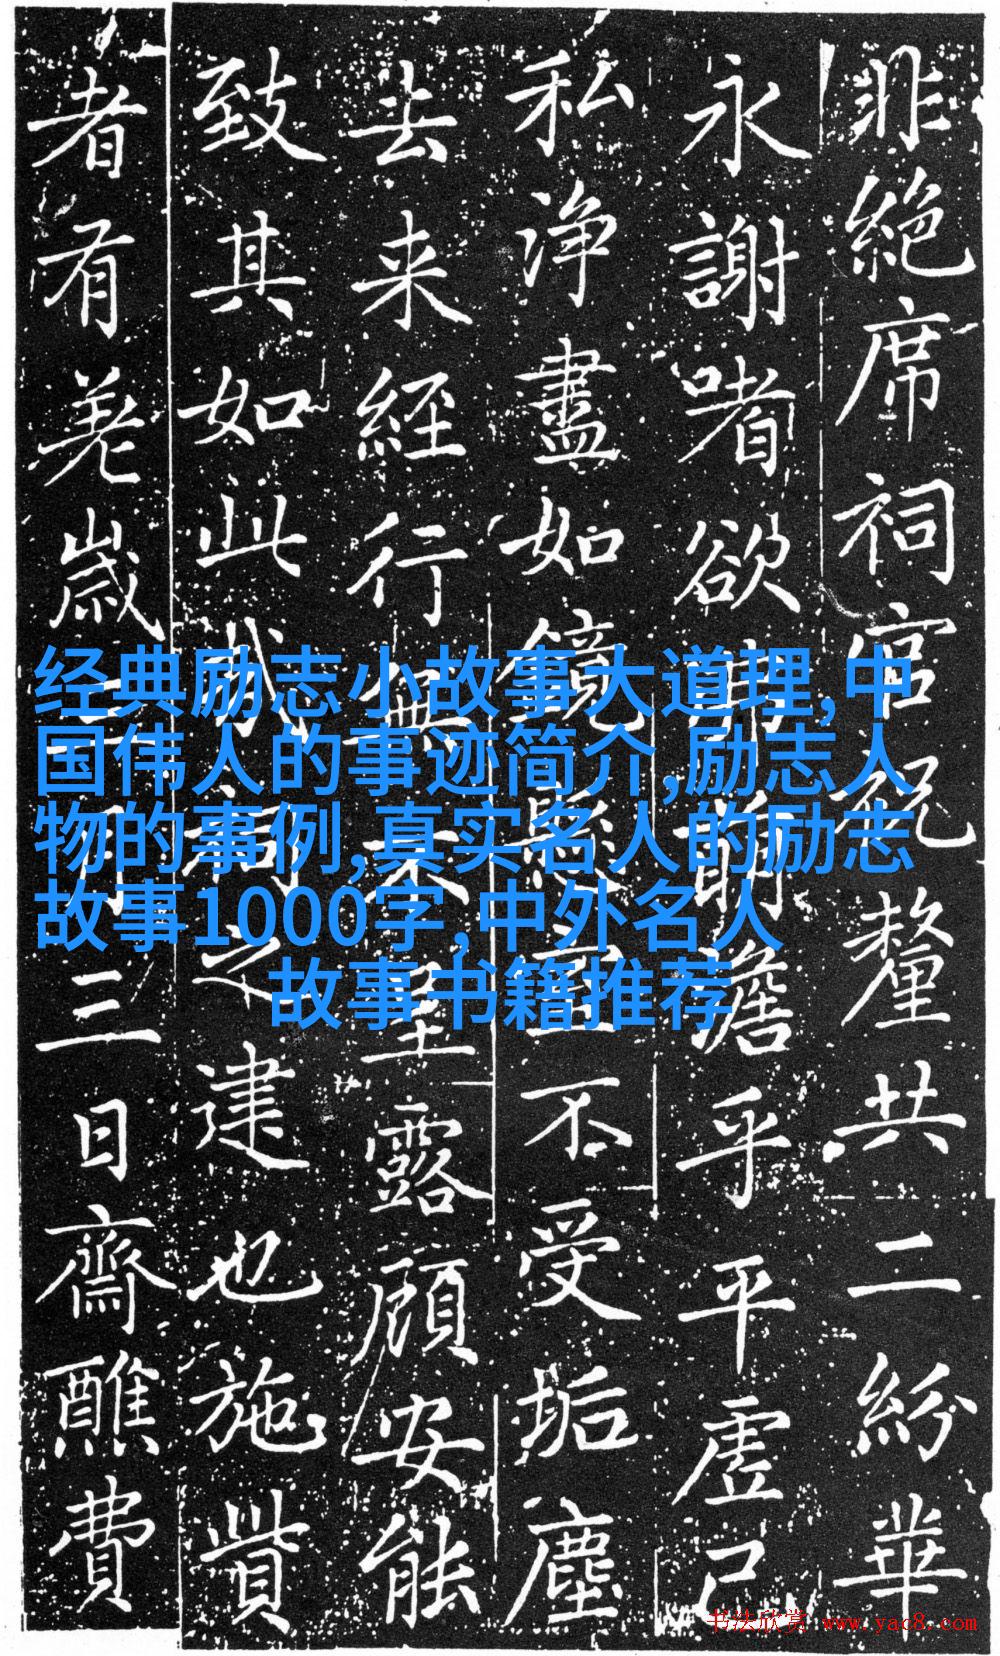 非絶席祠官祝釐共二紛華
永謝嗜欲萌澹乎平虗己
私浄盡如鏡不受垢塵
去来経行無墜露顧安能
致其如此哉之建也施貲
者有羌歳三日齋醮費
经典励志小故事大道理,中
国伟人的事迹简介,励志人
物的事例,真实名人的励志
故事1000字,中外名人
故事书籍推荐
书法欣赏 www.yac8.com